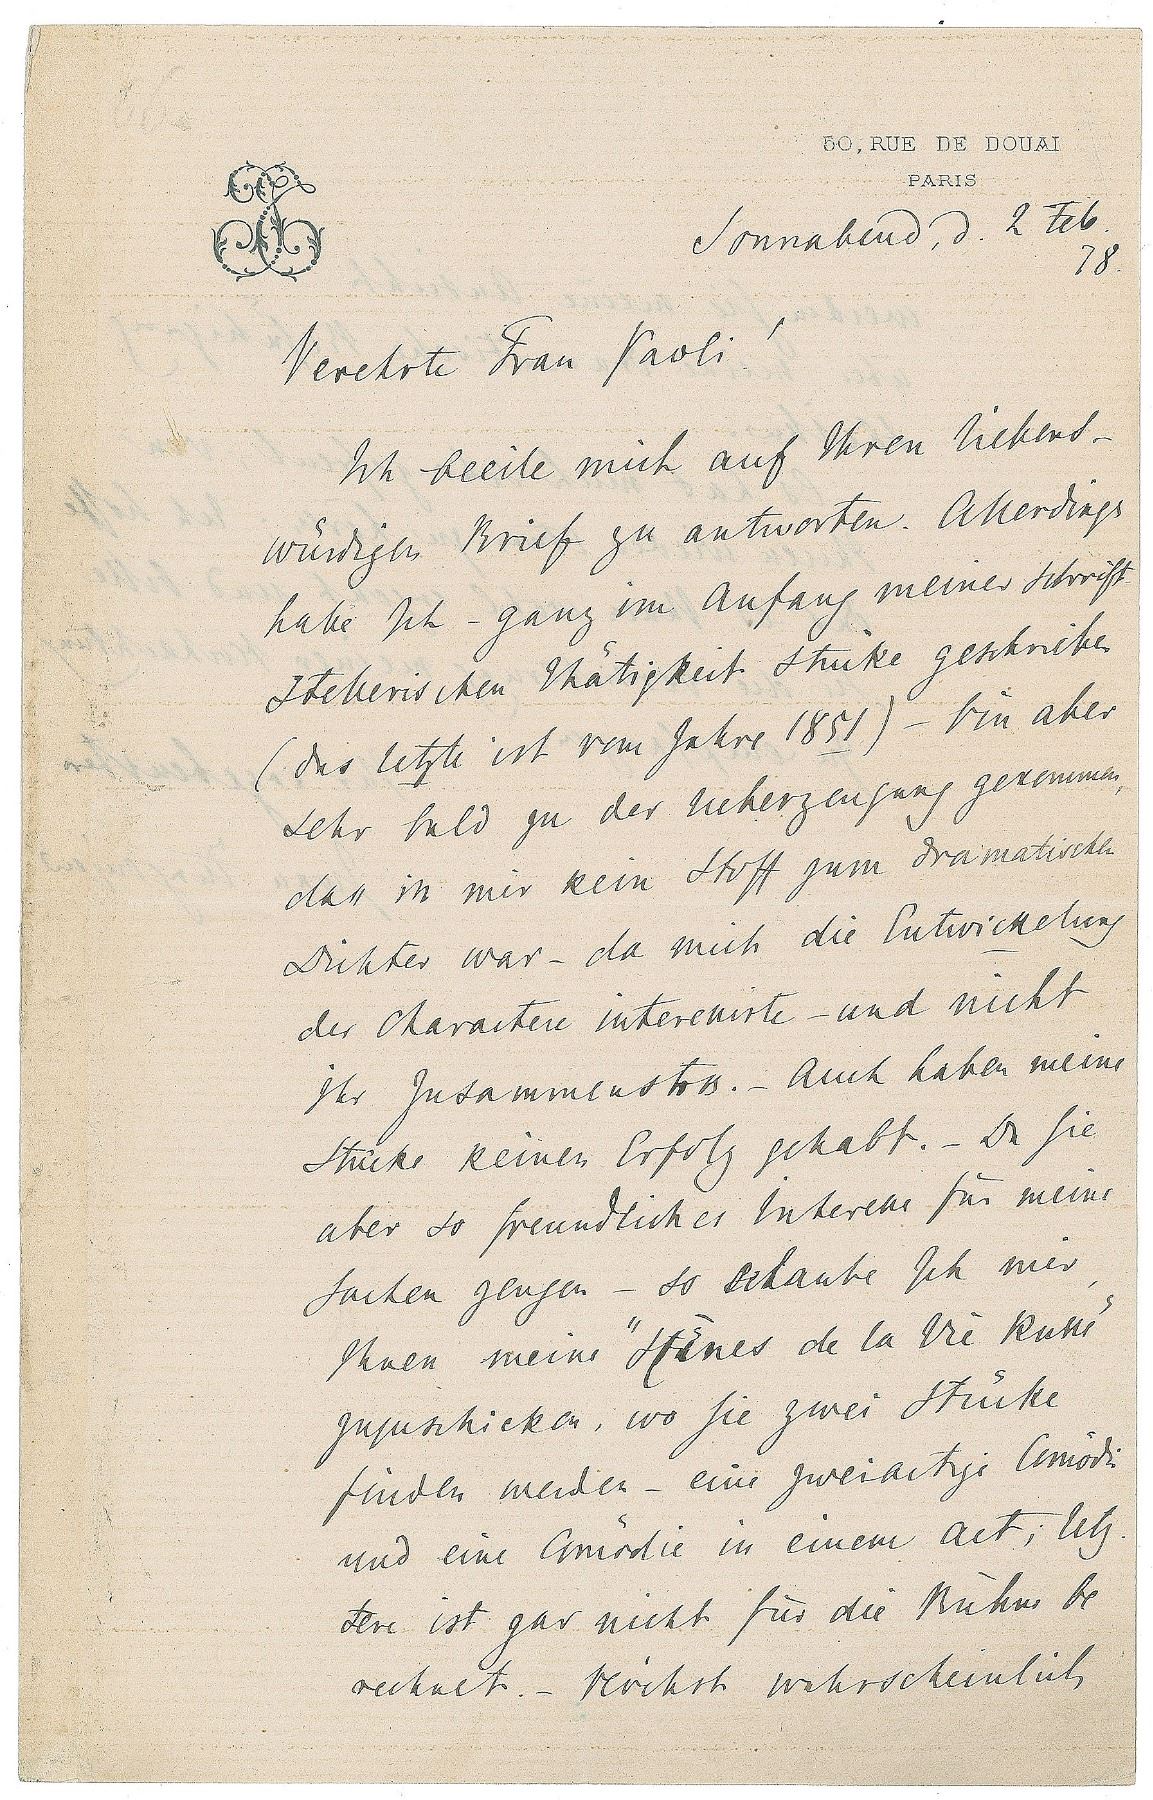 50, RUE DE DOUAI
PARIS
Sonnabend, d. 2 Feb.
78.
Verehrte Frau Paoli!
Ich beeile mich auf Ihren liebens-
würdigen Brief zu antworten. Allerdings
habe Ich – ganz im Anfang meiner schrift-
stellerischen Thätigkeit Stücke geschrieben
(das letzte ist vom Jahre 1851) – bin aber
sehr bald zu der Ueberzeugung gekommen,
dass in mir kein Stoff zum dramatischen
Dichter war – da mich die Entwickelung
der Charactere interessirte – und nicht
ihr Zusammenstoss. – Auch haben meine
Stücke keinen Erfolg gehabt. – Da Sie
aber so freundliches Interesse für meine
Sachen zeigen – so erlaube Ich mir,
Ihnen meine "Scènes de la Vie Russe"
zuzuschicken, wo Sie zwei Stücke
finden werden – eine zweiactige Comödie
und eine Comödie in einem Act; letz-
tere ist gar nicht für die Bühne be
rechnet. – Höchst wahrscheinlich